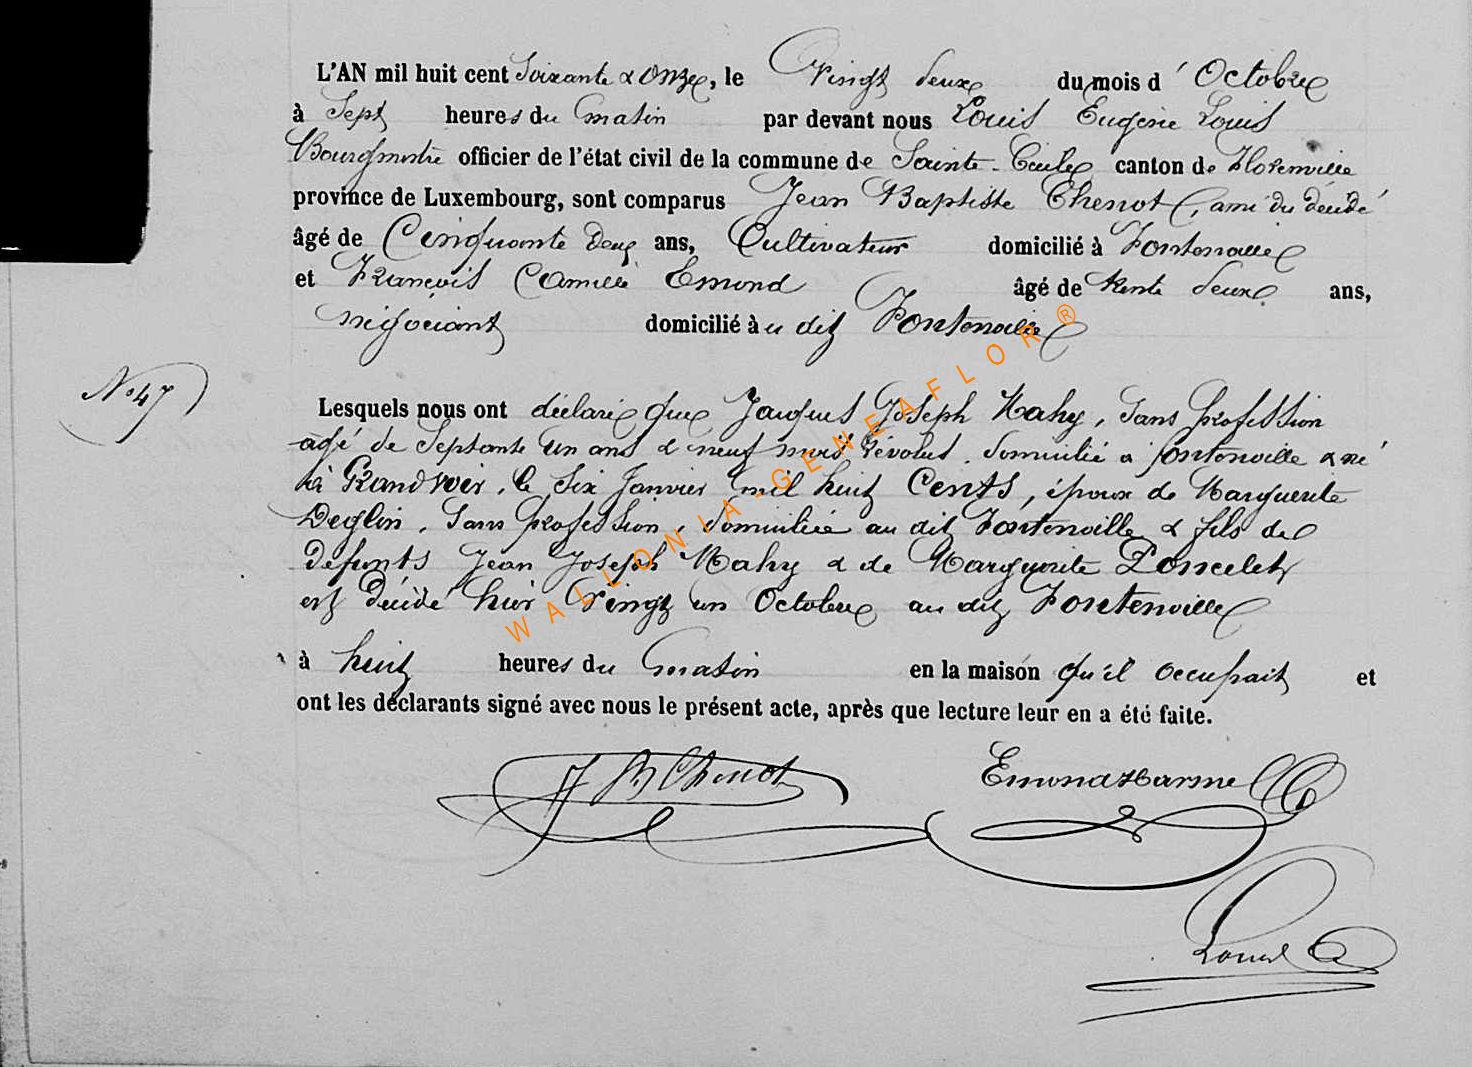 L'AN mil huit cent Soixante & Onze, le Vingt deux du mois d' Octobre
à Sept heures du matin par devant nous Louis Eugène Louis
Bourgmestre officier de l'état civil de la commune de Sainte-Cécile canton de Florenville
province de Luxembourg, sont comparus Jean Baptiste Chenot, ami du décédé
âgé de Cinquante deux ans, Cultivateur domicilié à Fontenoille
et François Camille Emond âgé de trente deux ans,
négociant domicilié à u dit Fontenoille
No 47
Lesquels nous ont déclaré que Jacques Joseph Mahy, sans profession
agé de Septante un ans & neuf mois révolus, domicilié à fontenoille & né
à Grandvoir, le six Janvier mil huit Cents, époux de Marguerite
Deglin, sans profession, domiciliée au dit Fontenoille & fils de
défunts Jean Joseph Mahy & de Marguerite Poncelet
est décédé hier Vingt un Octobre au dit Fontenoille
à huit heures du matin en la maison qu'il occupait et
ont les déclarants signé avec nous le présent acte, après que lecture leur en a été faite.
J B Chenot Emond Harmel
Louis
WALLONIA-GENEAFLOR®